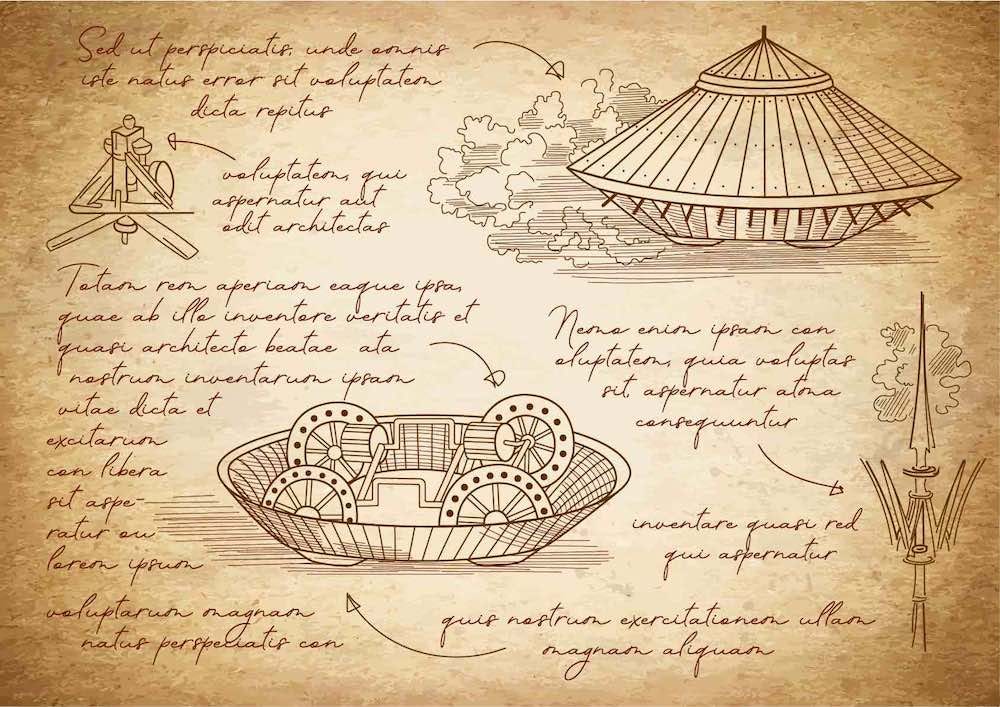 Sed ut perspiciatis, unde omnis
iste natus error sit voluptatem
dicta repitus
voluptatem, qui
aspernatur aut
odit architectas
Totam rem aperiam eaque ipsa,
quae ab illo inventore veritatis et
quasi architecto beatae ata
nostrum inventarum ipsam
vitae dicta et
excitarum
con libera
sit aspe-
ratur ou
lorem ipsum
voluptarum magnam
natus perspeciatis con
Nemo enim ipsam con
oluptatem, quia voluptas
sit, aspernatur atma
consequuntur
inventare quasi red
qui aspernatur
quis nostrum exercitationem ullam
magnam aliquam